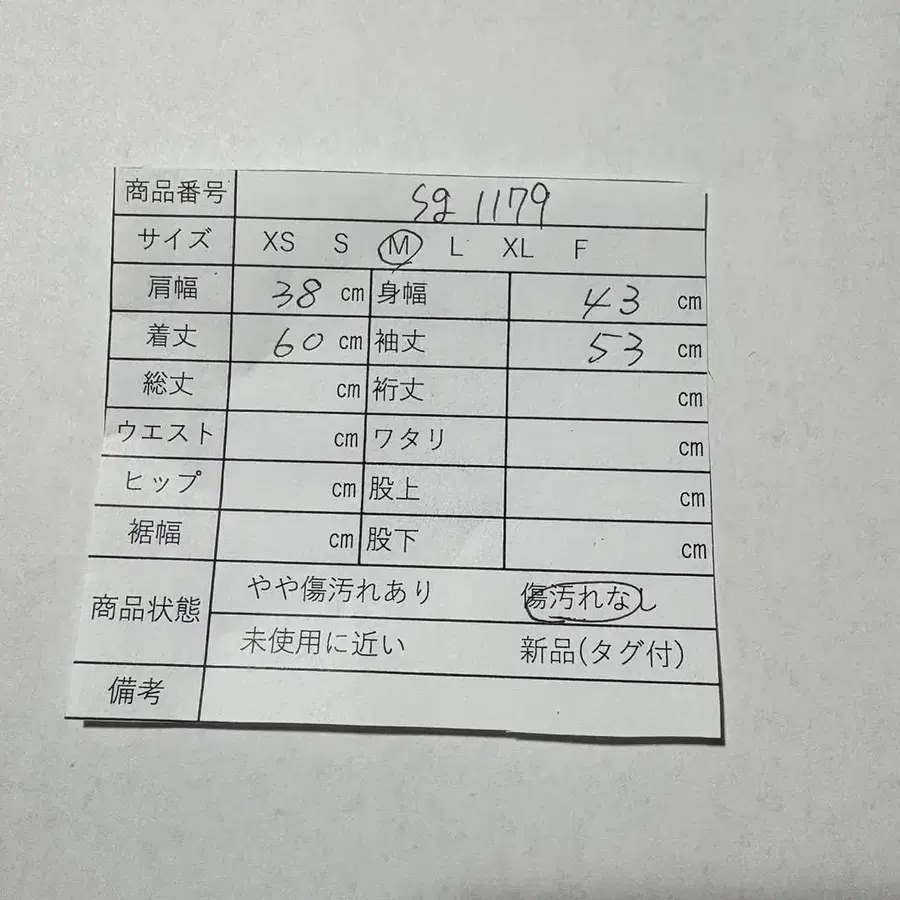 商品番号 sg 1179
サイズ XS S M L XL F
肩幅 38 cm 身幅 43 cm
着丈 60 cm 袖丈 53 cm
総丈 cm 裄丈 cm
ウエスト cm ワタリ cm
ヒップ cm 股上 cm
裾幅 cm 股下 cm
商品状態 やや傷汚れあり 傷汚れなし
未使用に近い 新品(タグ付)
備考